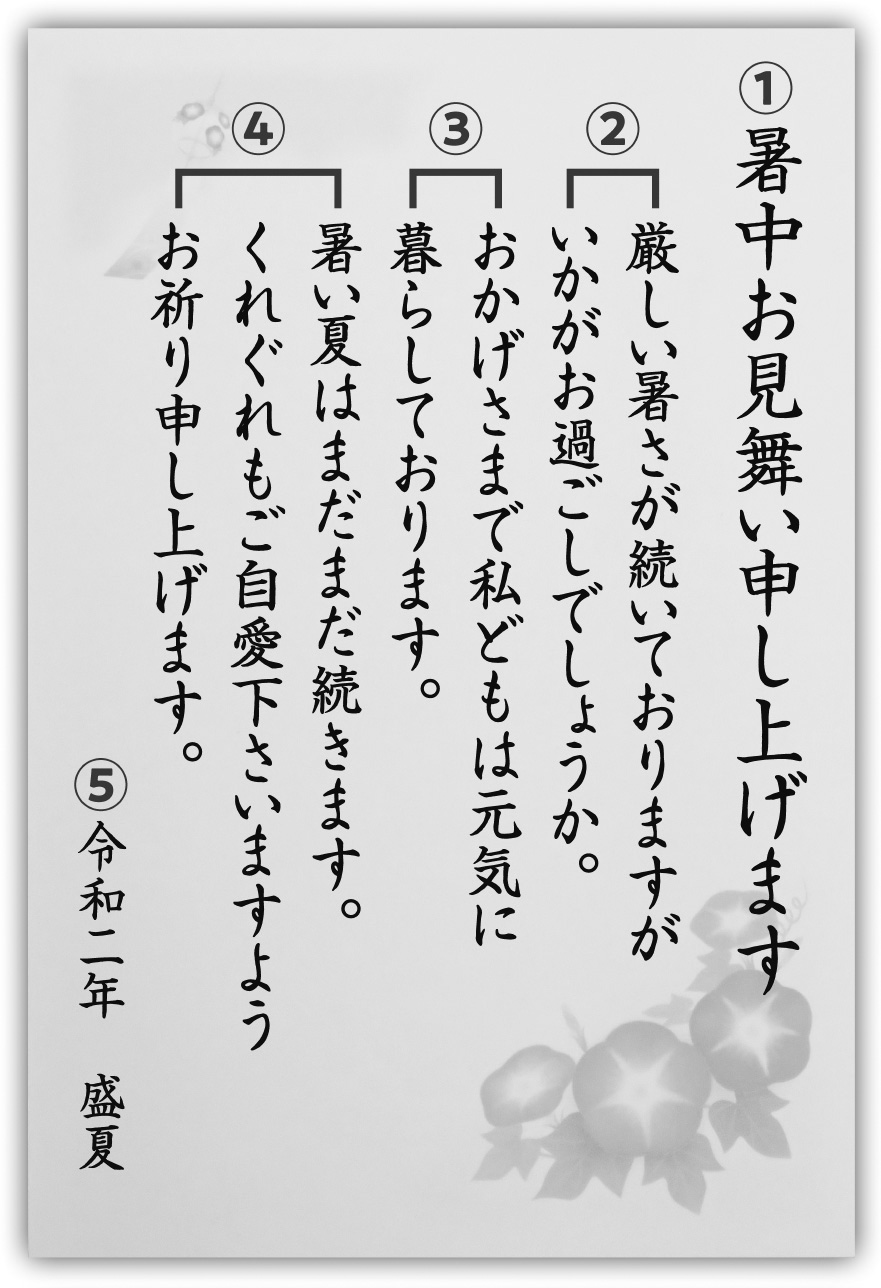 ①暑中お見舞い申し上げます
②
厳しい暑さが続いておりますが
いかがお過ごしでしょうか。
③
おかげさまで私どもは元気に
暮らしております。
④
暑い夏はまだまだ続きます。
くれぐれもご自愛下さいますよう
お祈り申し上げます。
⑤令和二年 盛夏